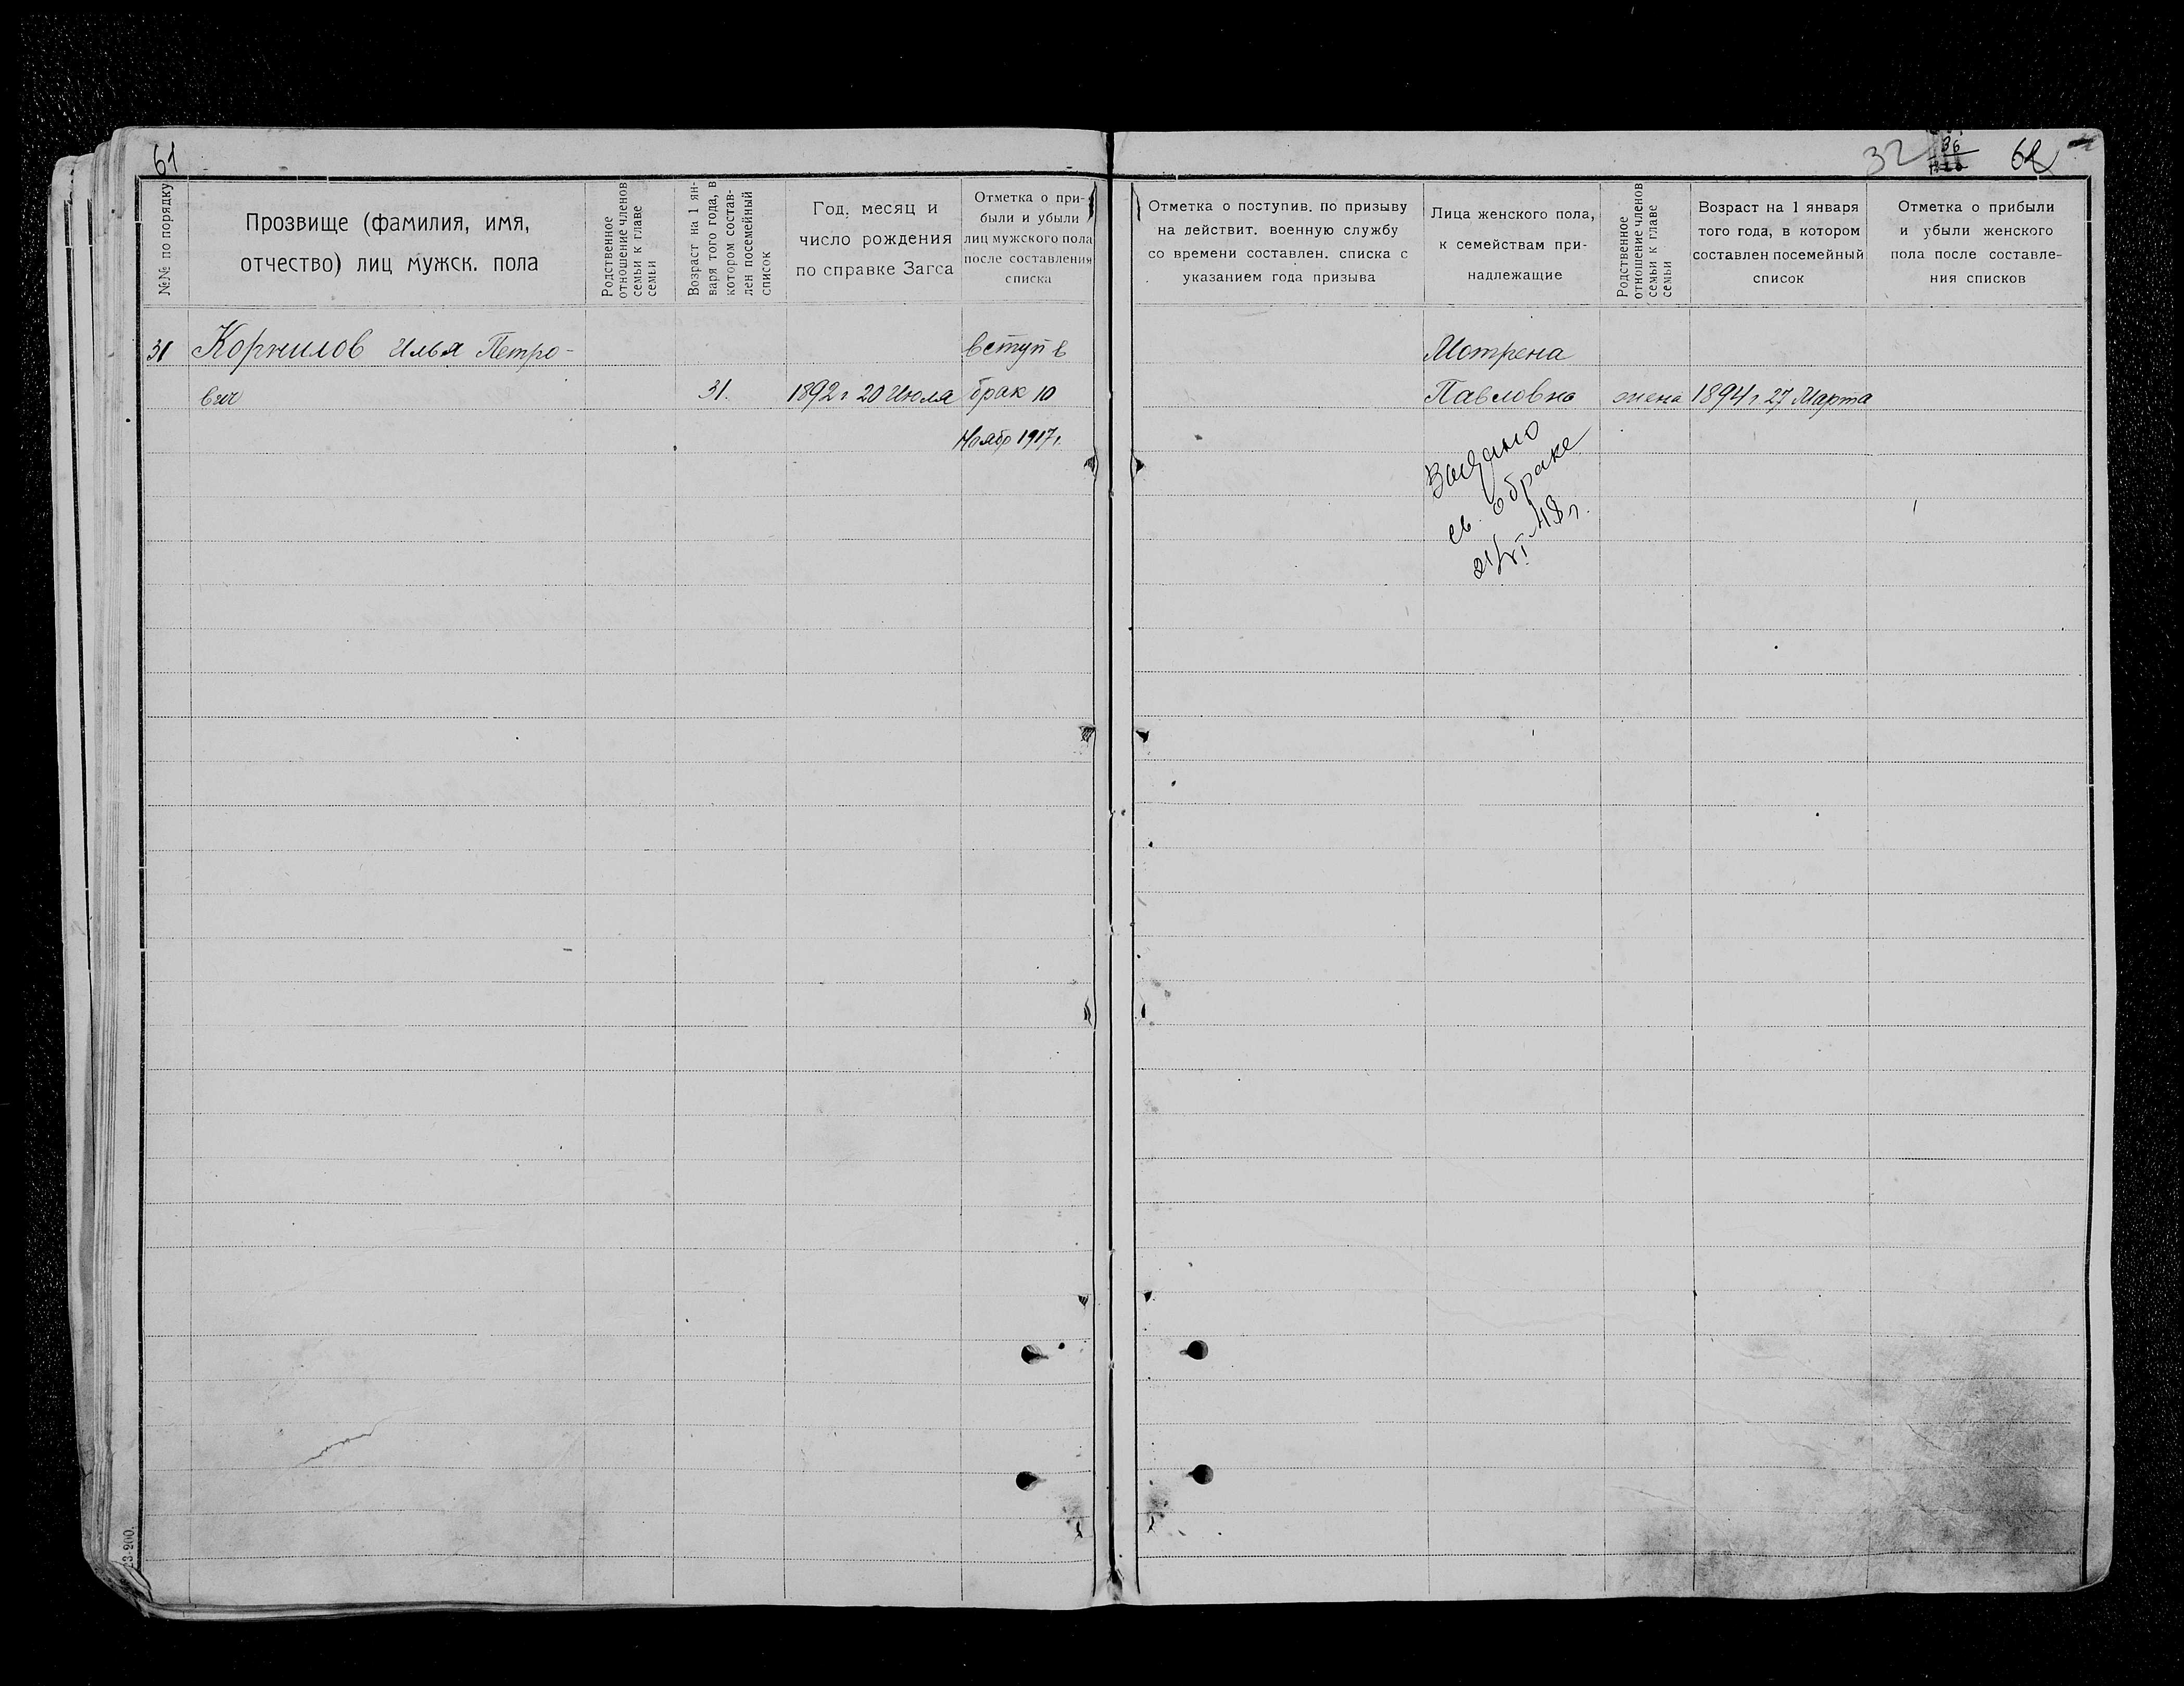 61
№№ по порядку
Прозвище (фамилия, имя,
отчество) лиц мужск. пола
Родственное
отношение членов
семьи к главе
семьи
Возраст на 1 ян-
варя того года, в
котором состав-
лен посемейный
список
Год, месяц и
число рождения
по справке Загса
Отметка о при-
были и убыли
лиц мужского пола
после составления
списка
31 Корнилов Илья Петро- вступ в
вич 31. 1892 г 20 Июля брак 10
Ноябр 1917 г.
23-200.
32 36 62
Отметка о поступив. по призыву
на действит. военную службу
со времени составлен. списка с
указанием года призыва
Лица женского пола,
к семействам при-
надлежащие
Родственное
отношение членов
семьи к главе
семьи
Возраст на 1 января
того года, в котором
составлен посемейный
список
Отметка о прибыли
и убыли женского
пола после составле-
ния списков
Мотрена
Павловна жена 1894 г. 27 Марта
Выдано
св. о браке
21/VI 48 г.